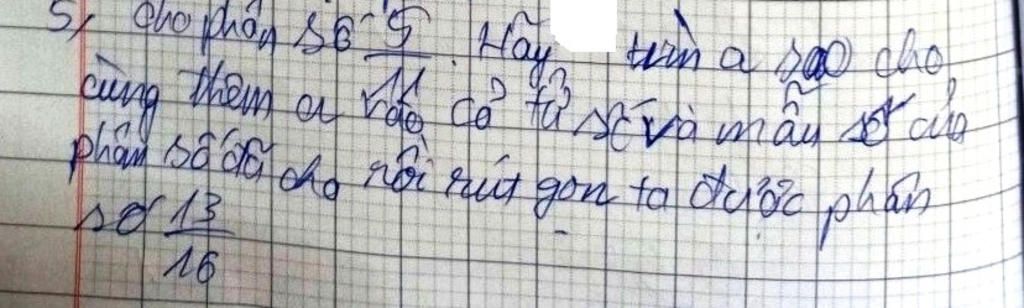 5, Cho phân số 5/11. Hãy tìm a sao cho
cùng thêm a vào cả tử số và mẫu số của
phân số đã cho rồi rút gọn ta được phân
số 13/16